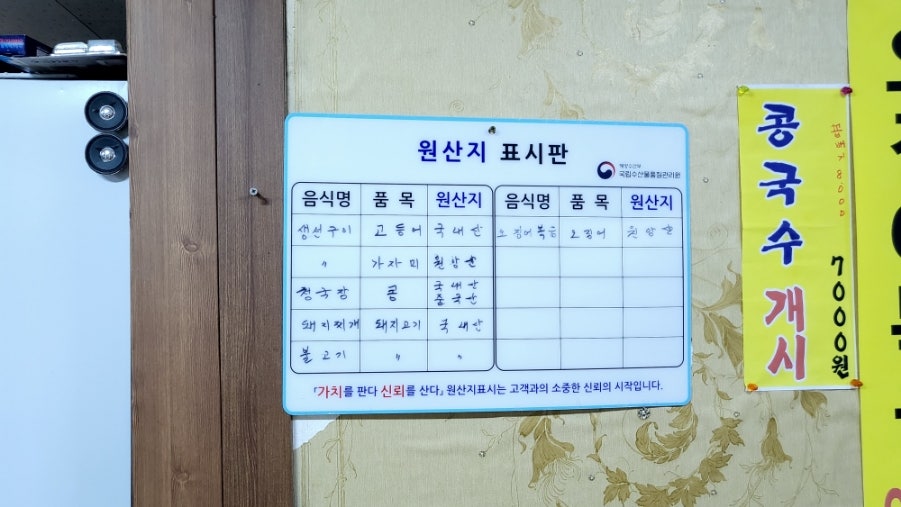 원산지 표시판
해양수산부
국립수산물품질관리원
음식명 품목 원산지
생선구이 고등어 국내산
〃 가자미 원양산
청국장 콩 국내산 중국산
돼지찌개 돼지고기 국내산
불고기 〃 〃
음식명 품목 원산지
오징어볶음 오징어 원양산
「가치를 판다 신뢰를 산다」 원산지표시는 고객과의 소중한 신뢰의 시작입니다.
콩국수 개시
7000원